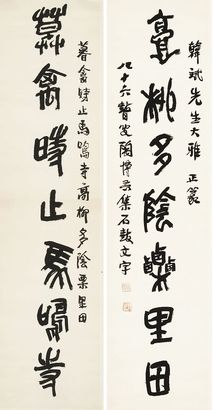 韓斌先生大雅 正篆
高柳多陰栗里田
八十六瞽叟陶博吾集石鼓文字
暮禽時止馬鳴寺高柳多陰栗里田
暮禽時止馬鳴寺